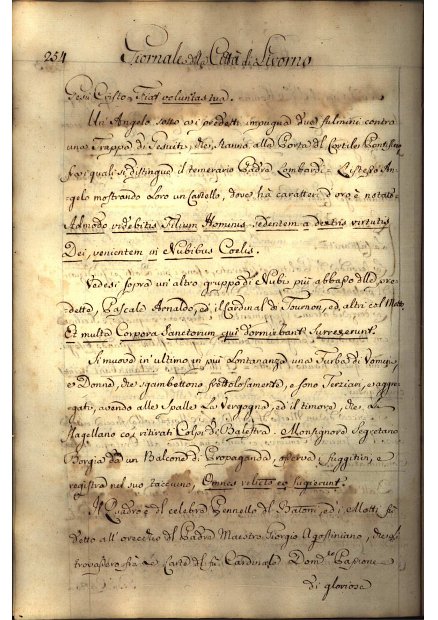 254 Giornale della Città di Livorno
Gesù Cristo, Fiat voluntas tua.
Un' Angelo sotto ai predetti impugna due fulmini contro
una Trappa di Gesuiti, che stanno alla Porta del Cortile Pontificio
fra i quali si distingue il temerario Padre Lombardi. L'istesso An-
gelo mostrando loro un Castello, dove hà caratteri d'oro è notato
Admodo videbitis Filium Hominis sedentem a dextris virtutis
Dei, venientem in Nubibus Coelis.
Vedesi sopra un altro gruppo di Nubi più abbasso delle pre-
dette, Pascale Arnaldo, ed il Cardinal di Tournon, ed altri col Motto,
Et multa Corpora Sanctorum, qui dormiebant Surrexerunt.
Si muove in ultimo in più Lontananza una Turba di Uomini,
e Donne, che sgambettono frettolosamente, e sono Terziari, e aggre-
gati, avendo alle Spalle La Vergogna, ed il timore, che Li
flagellano coi ritirati Colpi di Balestra. Monsignore Segretario
Borgia da un Balcone di Propaganda, osserva i fuggitivi, e
registra nel suo taccuino, Omnes relicto eo fugierunt.
Il Quadro è del celebre Pennello del Batoni, ed i Motti fu
detto all'orecchio del Padre Maestro Giorgio Agostiniano, che si
trovassero frà le Carte del fù Cardinale Dom.co Passionei
di gloriosa